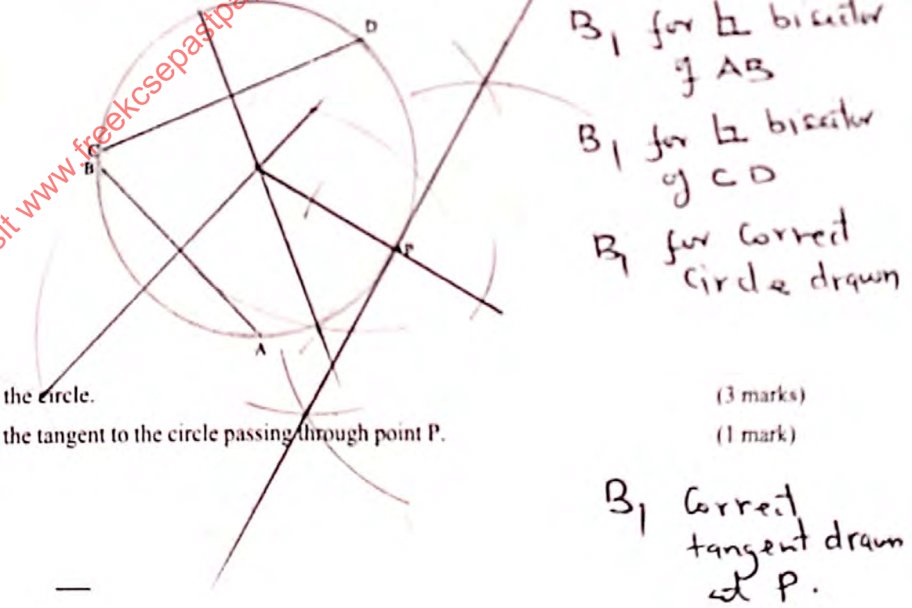 D
B₁ for ⊥ bisector
of AB
visit www.freekcsepastpa
C
B
B₁ for ⊥ bisector
of CD
P
B₁ for Correct
Circle drawn
A
the circle. (3 marks)
the tangent to the circle passing through point P. (1 mark)
B₁ Correct
tangent drawn
at P.